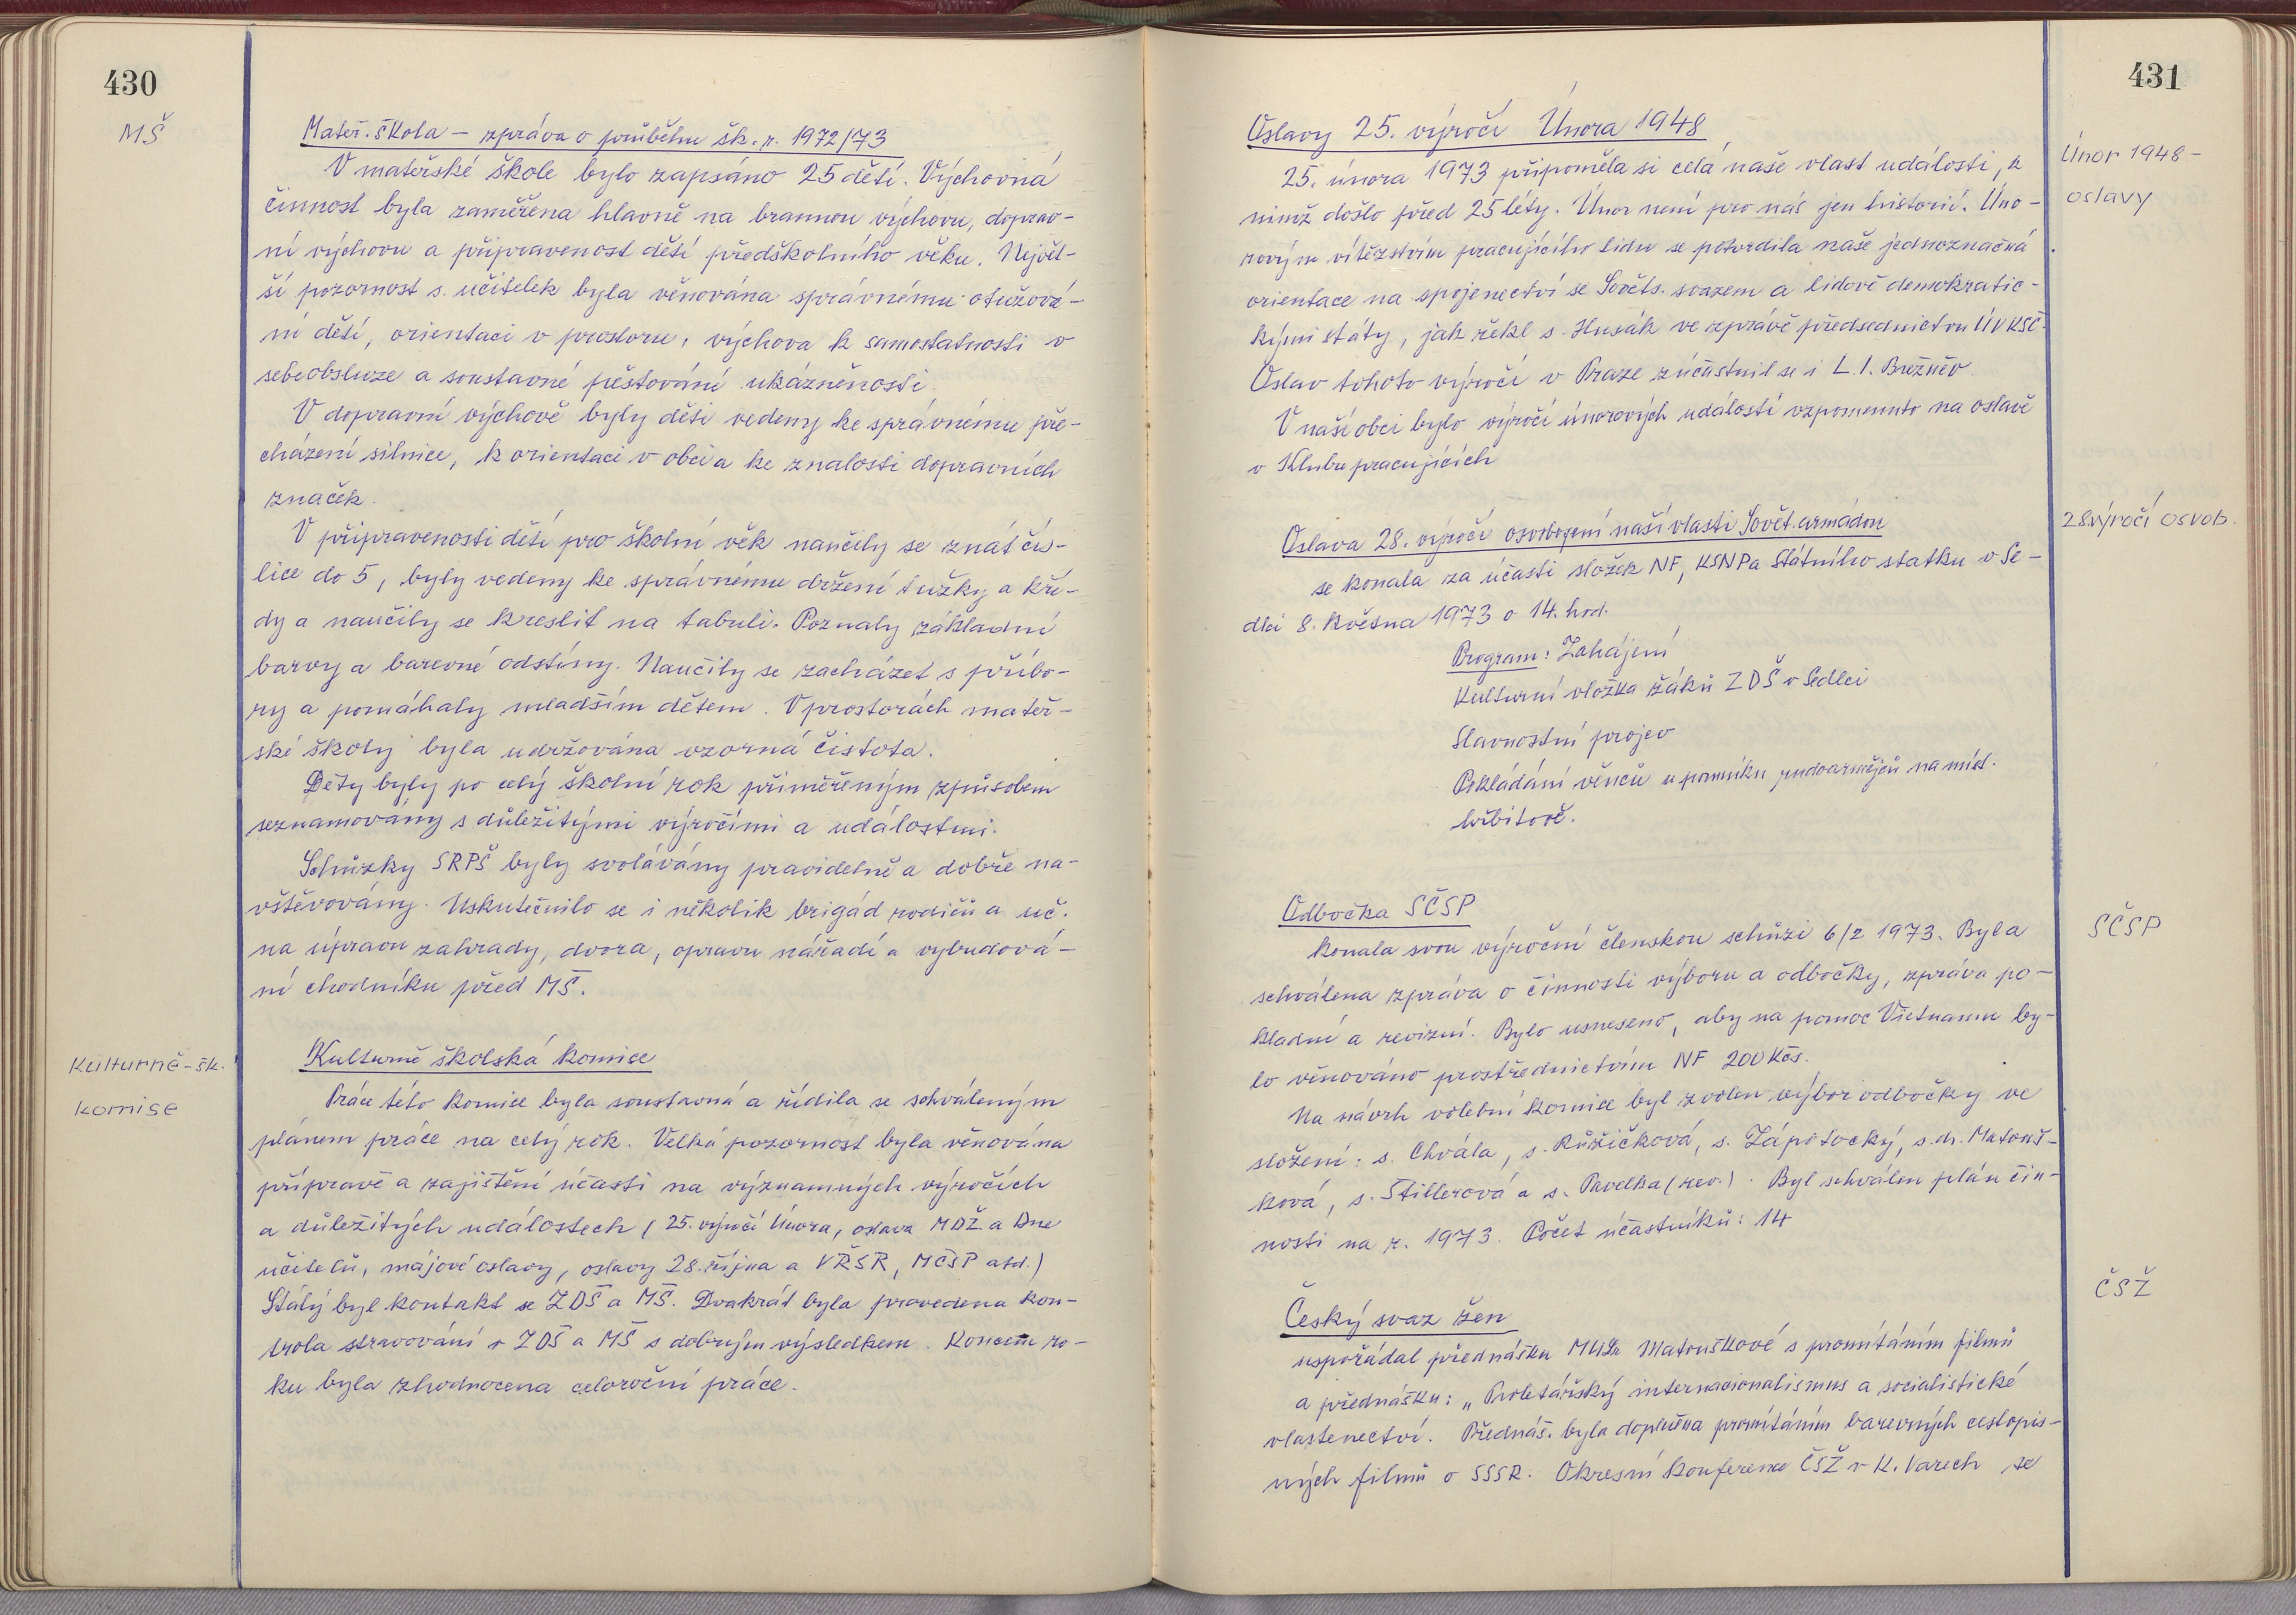 430
MŠ
Mateř. škola – zpráva o průběhu šk. r. 1972/73
V mateřské škole bylo zapsáno 25 dětí. Výchovná
činnost byla zaměřena hlavně na brannou výchovu, doprav-
ní výchovu a připravenost dětí předškolního věku. Největ-
ší pozornost s. učitelek byla věnována správnému otužová-
ní dětí, orientaci v prostoru, výchova k samostatnosti v
sebeobsluze a soustavné pěstování ukázněnosti.
V dopravní výchově byly děti vedeny ke správnému pře-
cházení silnice, k orientaci v obci a ke znalosti dopravních
značek.
V připravenosti dětí pro školní věk naučily se znát čís-
lice do 5, byly vedeny ke správnému držení tužky a kří-
dy a naučily se kreslit na tabuli. Poznaly základní
barvy a barevné odstíny. Naučily se zacházet s příbo-
ry a pomáhaly mladším dětem. V prostorách mateř-
ské školy byla udržována vzorná čistota.
Děty byly po celý školní rok přiměřeným způsobem
seznamovány s důležitými výročími a událostmi.
Schůzky SRPŠ byly svolávány pravidelně a dobře na-
vštěvovány. Uskutečnilo se i několik brigád rodičů a uč.
na úpravu zahrady, dvora, opravu nářadí a vybudová-
ní chodníku před MŠ.
Kulturně-šk.
komise
Kulturně školská komise
Práce této komise byla soustavná a řídila se schváleným
plánem práce na celý rok. Velká pozornost byla věnována
přípravě a zajištění účasti na významných výročích
a důležitých událostech (25. výročí Února, oslava MDŽ a Dne
učitelů, májové oslavy, oslavy 28. října a VŘSR, MČSP atd.)
Stálý byl kontakt se ZDŠ a MŠ. Dvakrát byla provedena kon-
trola stravování v ZDŠ a MŠ s dobrým výsledkem. Koncem ro-
ku byla zhodnocena celoroční práce.
431
Oslavy 25. výročí Února 1948
Únor 1948 –
oslavy
25. února 1973 připoměla si celá naše vlast události, k
nimž došlo před 25 léty. Únor není pro nás jen historií. Úno-
rovým vítězstvím pracujícího lidu se potvrdila naše jednoznačná
orientace na spojenectví se Sověts. svazem a lidově demokratic-
kými státy, jak řekl s. Husák ve zprávě předsednictvu ÚV KSČ.
Oslav tohoto výročí v Praze zúčastnil se i L. I. Brežněv
V naší obci bylo výročí únorových událostí vzpomenuto na oslavě
v Klubu pracujících
28 výročí osvob.
Oslava 28. výročí osvobození naší vlasti Sovět. armádou
se konala za účasti složek NF, KSNP a Státního statku v Se-
dlci 8. května 1973 o 14. hod.
Program: Zahájení
Kulturní vložka žáků ZDŠ v Sedleci
Slavnostní projev
Pokládání věnců u pomníku rudoarmějců na míst.
hřbitově.
SČSP
Odbočka SČSP
konala svou výroční členskou schůzi 6/2 1973. Byla
schválena zpráva o činnosti výboru a odbočky, zpráva po-
kladní a revizní. Bylo usneseno, aby na pomoc Vietnamu by-
lo věnováno prostřednictvím NF 200 Kčs.
Na návrh volební komise byl zvolen výbor odbočky ve
složení: s. Chvála, s. Růžičková, s. Zápotocký, s. dr. Matouš-
ková, s. Štillerová a s. Pavelka (rev.). Byl schválen plán čin-
nosti na r. 1973. Počet účastníků: 14
ČSŽ
Český svaz žen
uspořádal přednášku MUDr Matouškové s promítáním filmů
a přednášku: „Proletářský internacionalismus a socialistické
vlastenectví. Přednáš. byla doplněna promítáním barevných cestopis-
ných filmů o SSSR. Okresní konference ČSŽ v K. Varech se